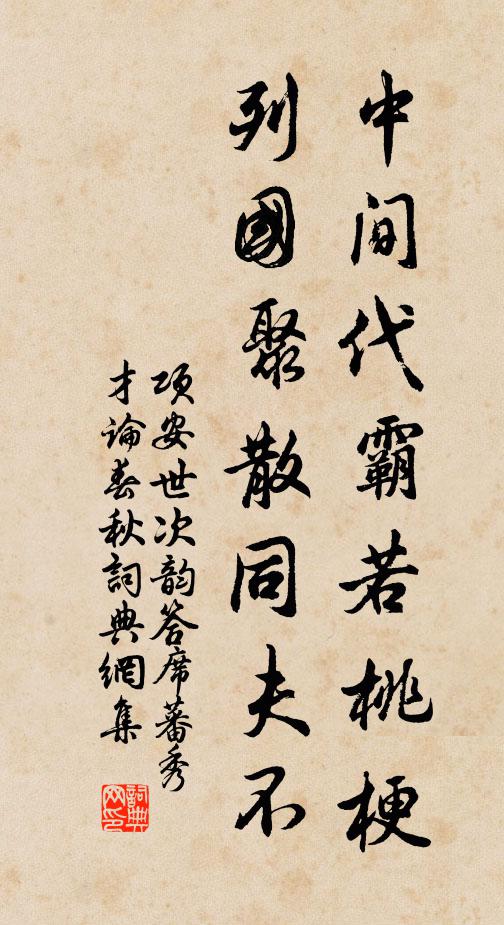 中间代霸若桃梗
列國聚散同夫不
项安世次韵答席蕃秀
才論春秋詞典網集
詞典网印